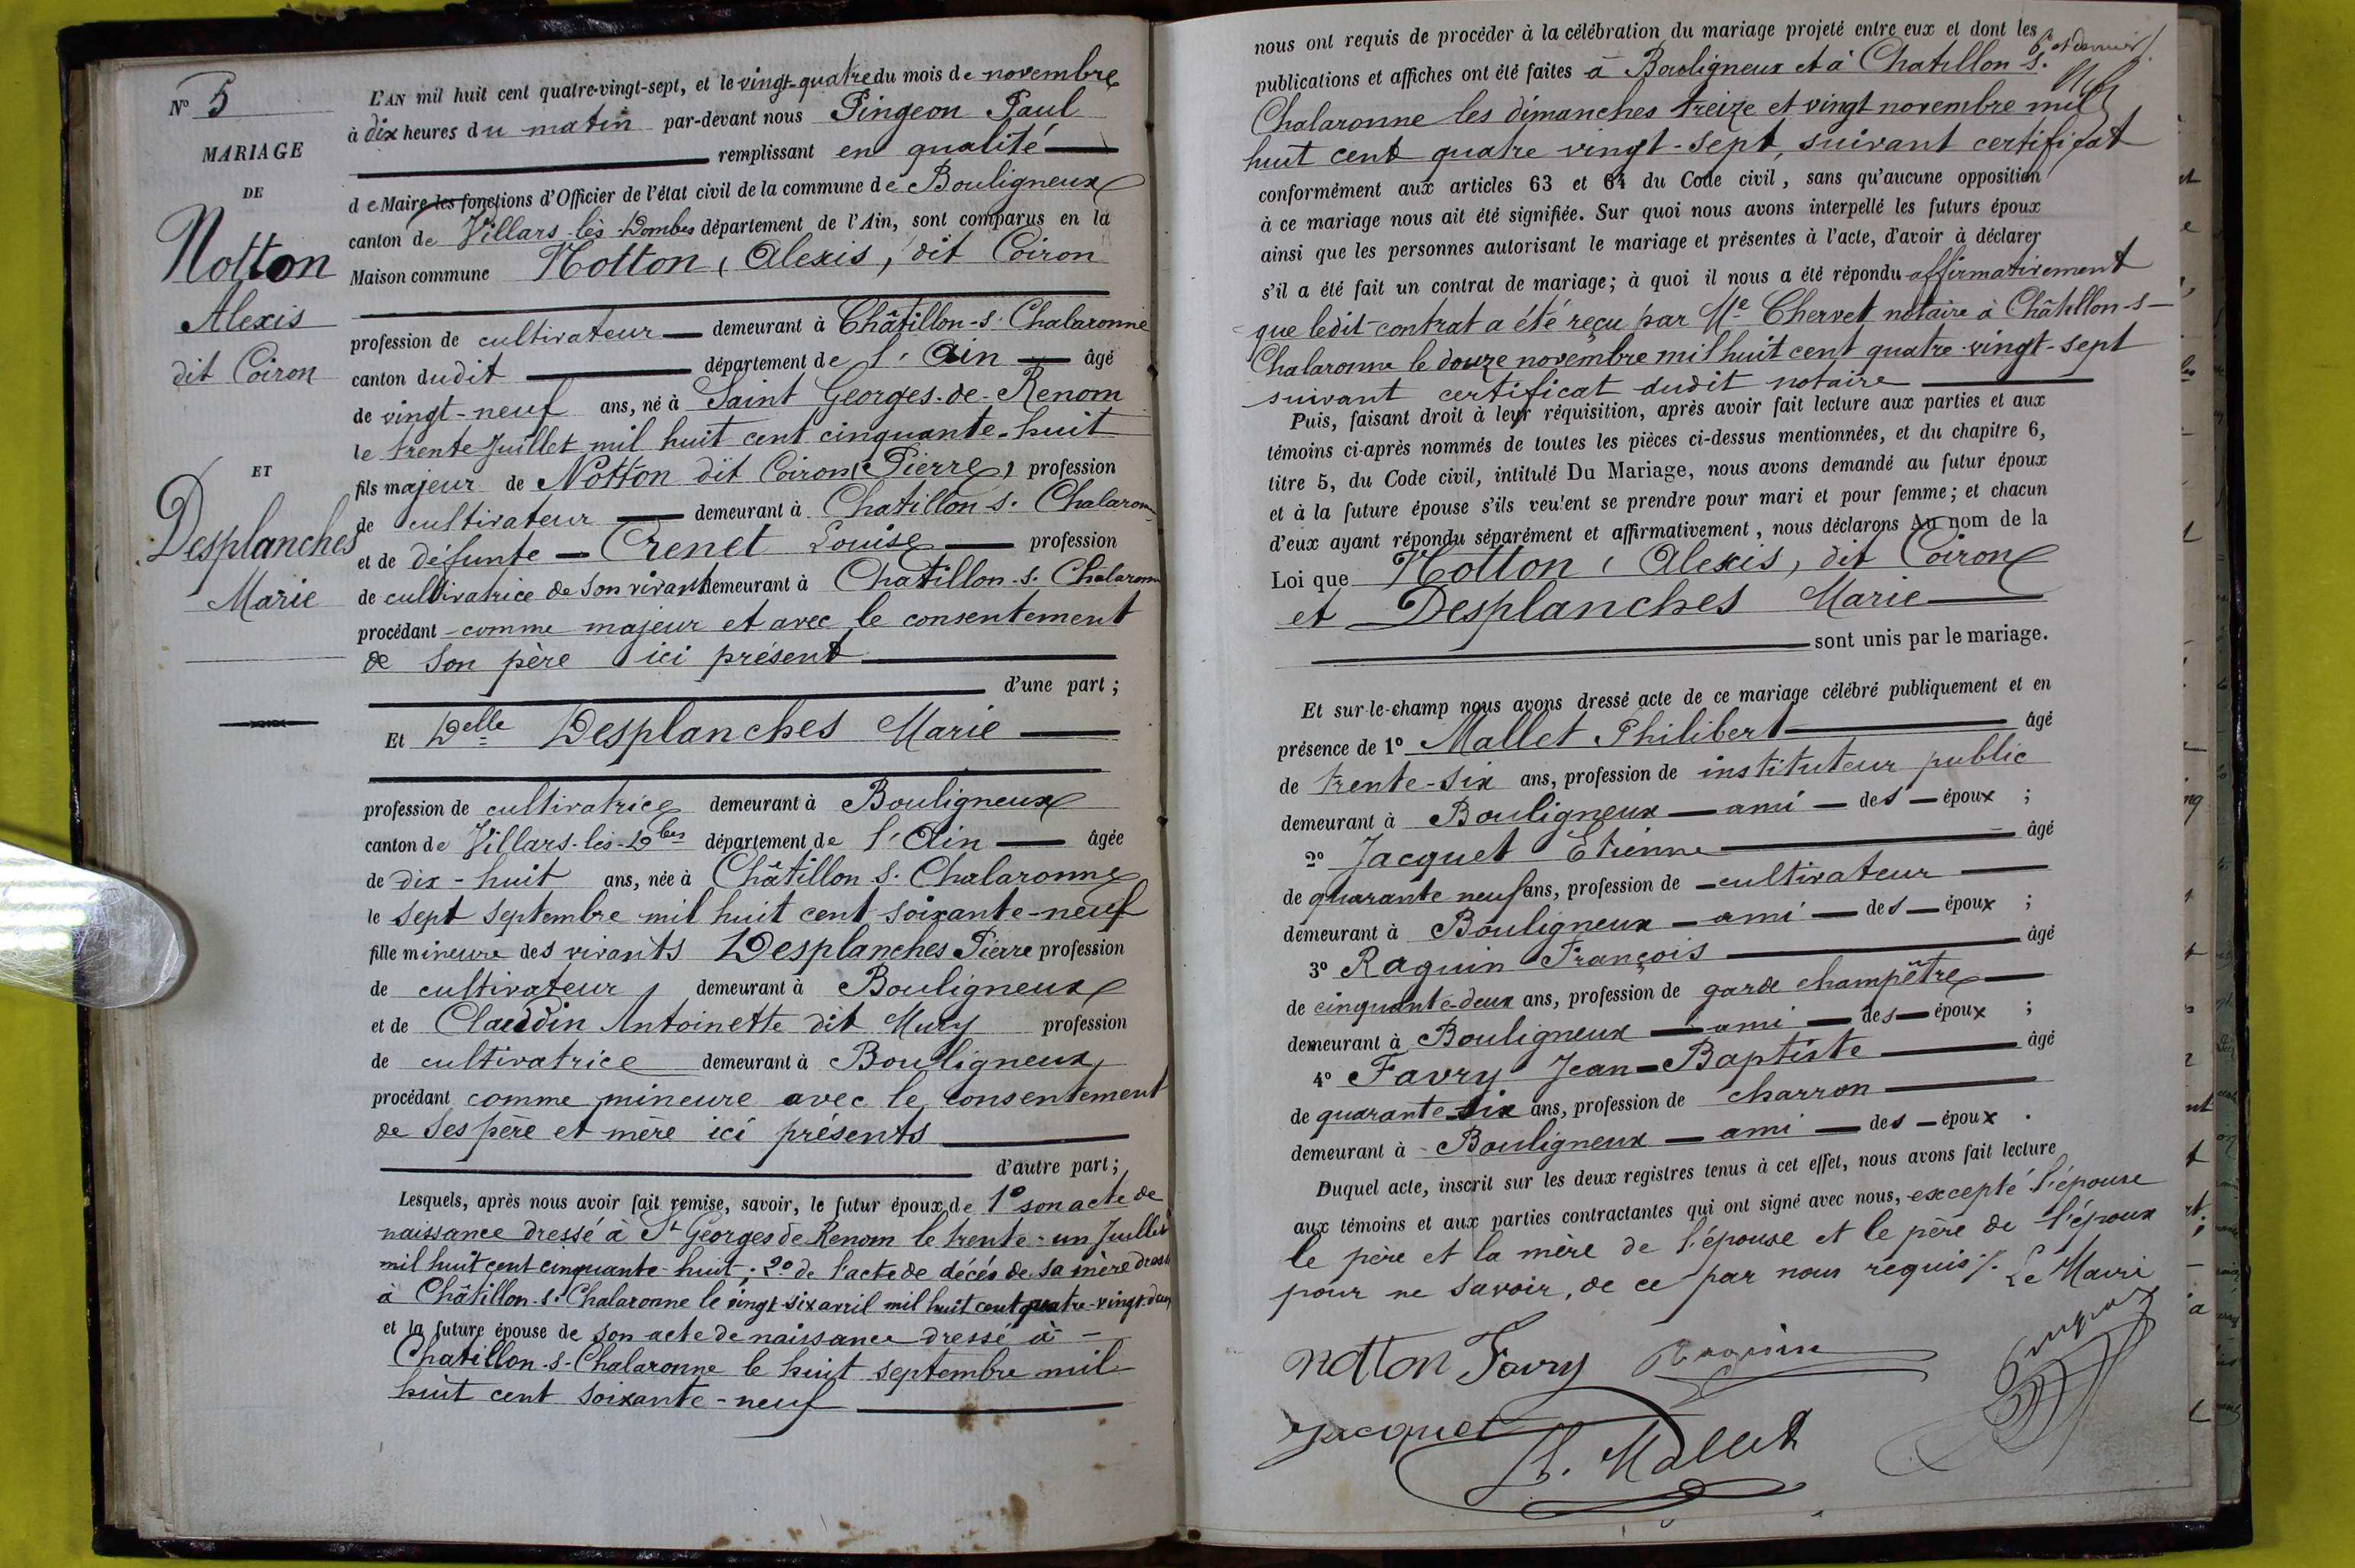 N° 5
MARIAGE
DE
Notton
Alexis
dit Coiron
ET
Desplanches
Marie
L'AN mil huit cent quatre-vingt-sept, et le vingt-quatre du mois de novembre
à dix heures du matin par-devant nous Pingeon Paul
remplissant en qualité
de Maire les fonctions d'Officier de l'état civil de la commune de Bouligneux
canton de Villars-les-Dombes département de l'Ain, sont comparus en la
Maison commune Notton, Alexis, dit Coiron
profession de cultivateur demeurant à Châtillon-s. Chalaronne
canton dudit département de l'Ain âgé
de vingt-neuf ans, né à Saint Georges-de-Renom
le trente Juillet mil huit cent cinquante-huit
fils majeur de Notton dit Coiron, Pierre, profession
de cultivateur demeurant à Chatillon s. Chalaron
et de défunte Crenet Louise profession
de cultivatrice de son vivant demeurant à Chatillon-s. Chalaronn
procédant comme majeur et avec le consentement
de son père ici présent
d'une part ;
Et Delle Desplanches Marie
profession de cultivatrice demeurant à Bouligneux
canton de Villars-les-Dbes département de l'Ain âgée
de dix-huit ans, née à Châtillon s. Chalaronne
le sept septembre mil huit cent soixante-neuf
fille mineure des vivants Desplanches Pierre profession
de cultivateur, demeurant à Bouligneux
et de Antoinette dit profession
de cultivatrice demeurant à Bouligneux,
procédant comme mineure avec le consentement
de ses père et mère ici présents
d'autre part ;
Lesquels, après nous avoir fait remise, savoir, le futur époux de 1° son acte de
naissance dressé à St Georges de Renom le trente-un Juillet
mil huit cent cinquante-huit ; 2° de l'acte de décès de sa mère dressé
à Châtillon-s. Chalaronne le vingt-six avril mil huit cent quatre-vingt-deux
et la future épouse de son acte de naissance dressé à
Chatillon-s-Chalaronne le huit septembre mil
huit cent soixante-neuf
nous ont requis de procéder à la célébration du mariage projeté entre eux et dont les
publications et affiches ont été faites à Bouligneux et à Chatillon s.
Chalaronne les dimanches treize et vingt novembre mil
huit cent quatre vingt-sept, suivant certificat
conformément aux articles 63 et 64 du Code civil, sans qu'aucune opposition
à ce mariage nous ait été signifiée. Sur quoi nous avons interpellé les futurs époux
ainsi que les personnes autorisant le mariage et présentes à l'acte, d'avoir à déclarer
s'il a été fait un contrat de mariage ; à quoi il nous a été répondu affirmativement
que ledit contrat a été reçu par Me Chervet notaire à Châtillon-s-
Chalaronne le douze novembre mil huit cent quatre-vingt-sept
suivant certificat dudit notaire
Puis, faisant droit à leur réquisition, après avoir fait lecture aux parties et aux
témoins ci-après nommés de toutes les pièces ci-dessus mentionnées, et du chapitre 6,
titre 5, du Code civil, intitulé Du Mariage, nous avons demandé au futur époux
et à la future épouse s'ils veulent se prendre pour mari et pour femme ; et chacun
d'eux ayant répondu séparément et affirmativement, nous déclarons Au nom de la
Loi que Notton, Alexis, dit Coiron
et Desplanches Marie
sont unis par le mariage.
Et sur-le-champ nous avons dressé acte de ce mariage célébré publiquement et en
présence de 1° Mallet Philibert âgé
de trente-six ans, profession de instituteur public
demeurant à Bouligneux ami des époux ;
2° Jacquet Etienne âgé
de quarante neuf ans, profession de cultivateur
demeurant à Bouligneux ami des époux ;
3° Raguin François âgé
de cinquante-deux ans, profession de garde champêtre
demeurant à Bouligneux ami des époux ;
4° Favry Jean-Baptiste âgé
de quarante-six ans, profession de charron
demeurant à Bouligneux ami des époux .
Duquel acte, inscrit sur les deux registres tenus à cet effet, nous avons fait lecture
aux témoins et aux parties contractantes qui ont signé avec nous, excepté l'épouse
le père et la mère de l'épouse et le père de l'époux
pour ne savoir, de ce par nous requis /. Le Maire
Notton Favry Raguin
Jacquet
Ph. Mallet